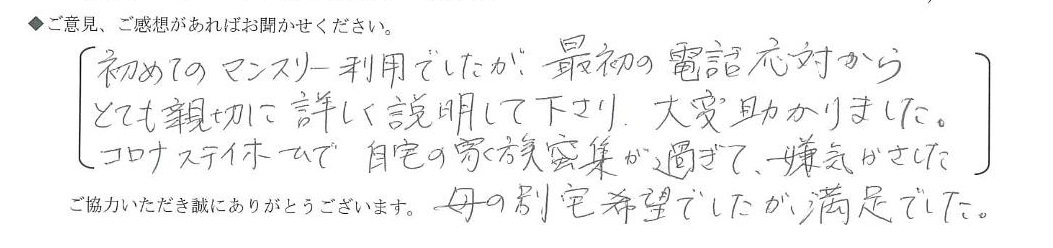 ◆ご意見、ご感想があればお聞かせください。
初めてのマンスリー利用でしたが、最初の電話応対から
とても親切に詳しく説明して下さり、大変助かりました。
コロナステイホームで自宅の家族密集が過ぎて、嫌気がさした
母の別宅希望でしたが、満足でした。
ご協力いただき誠にありがとうございます。